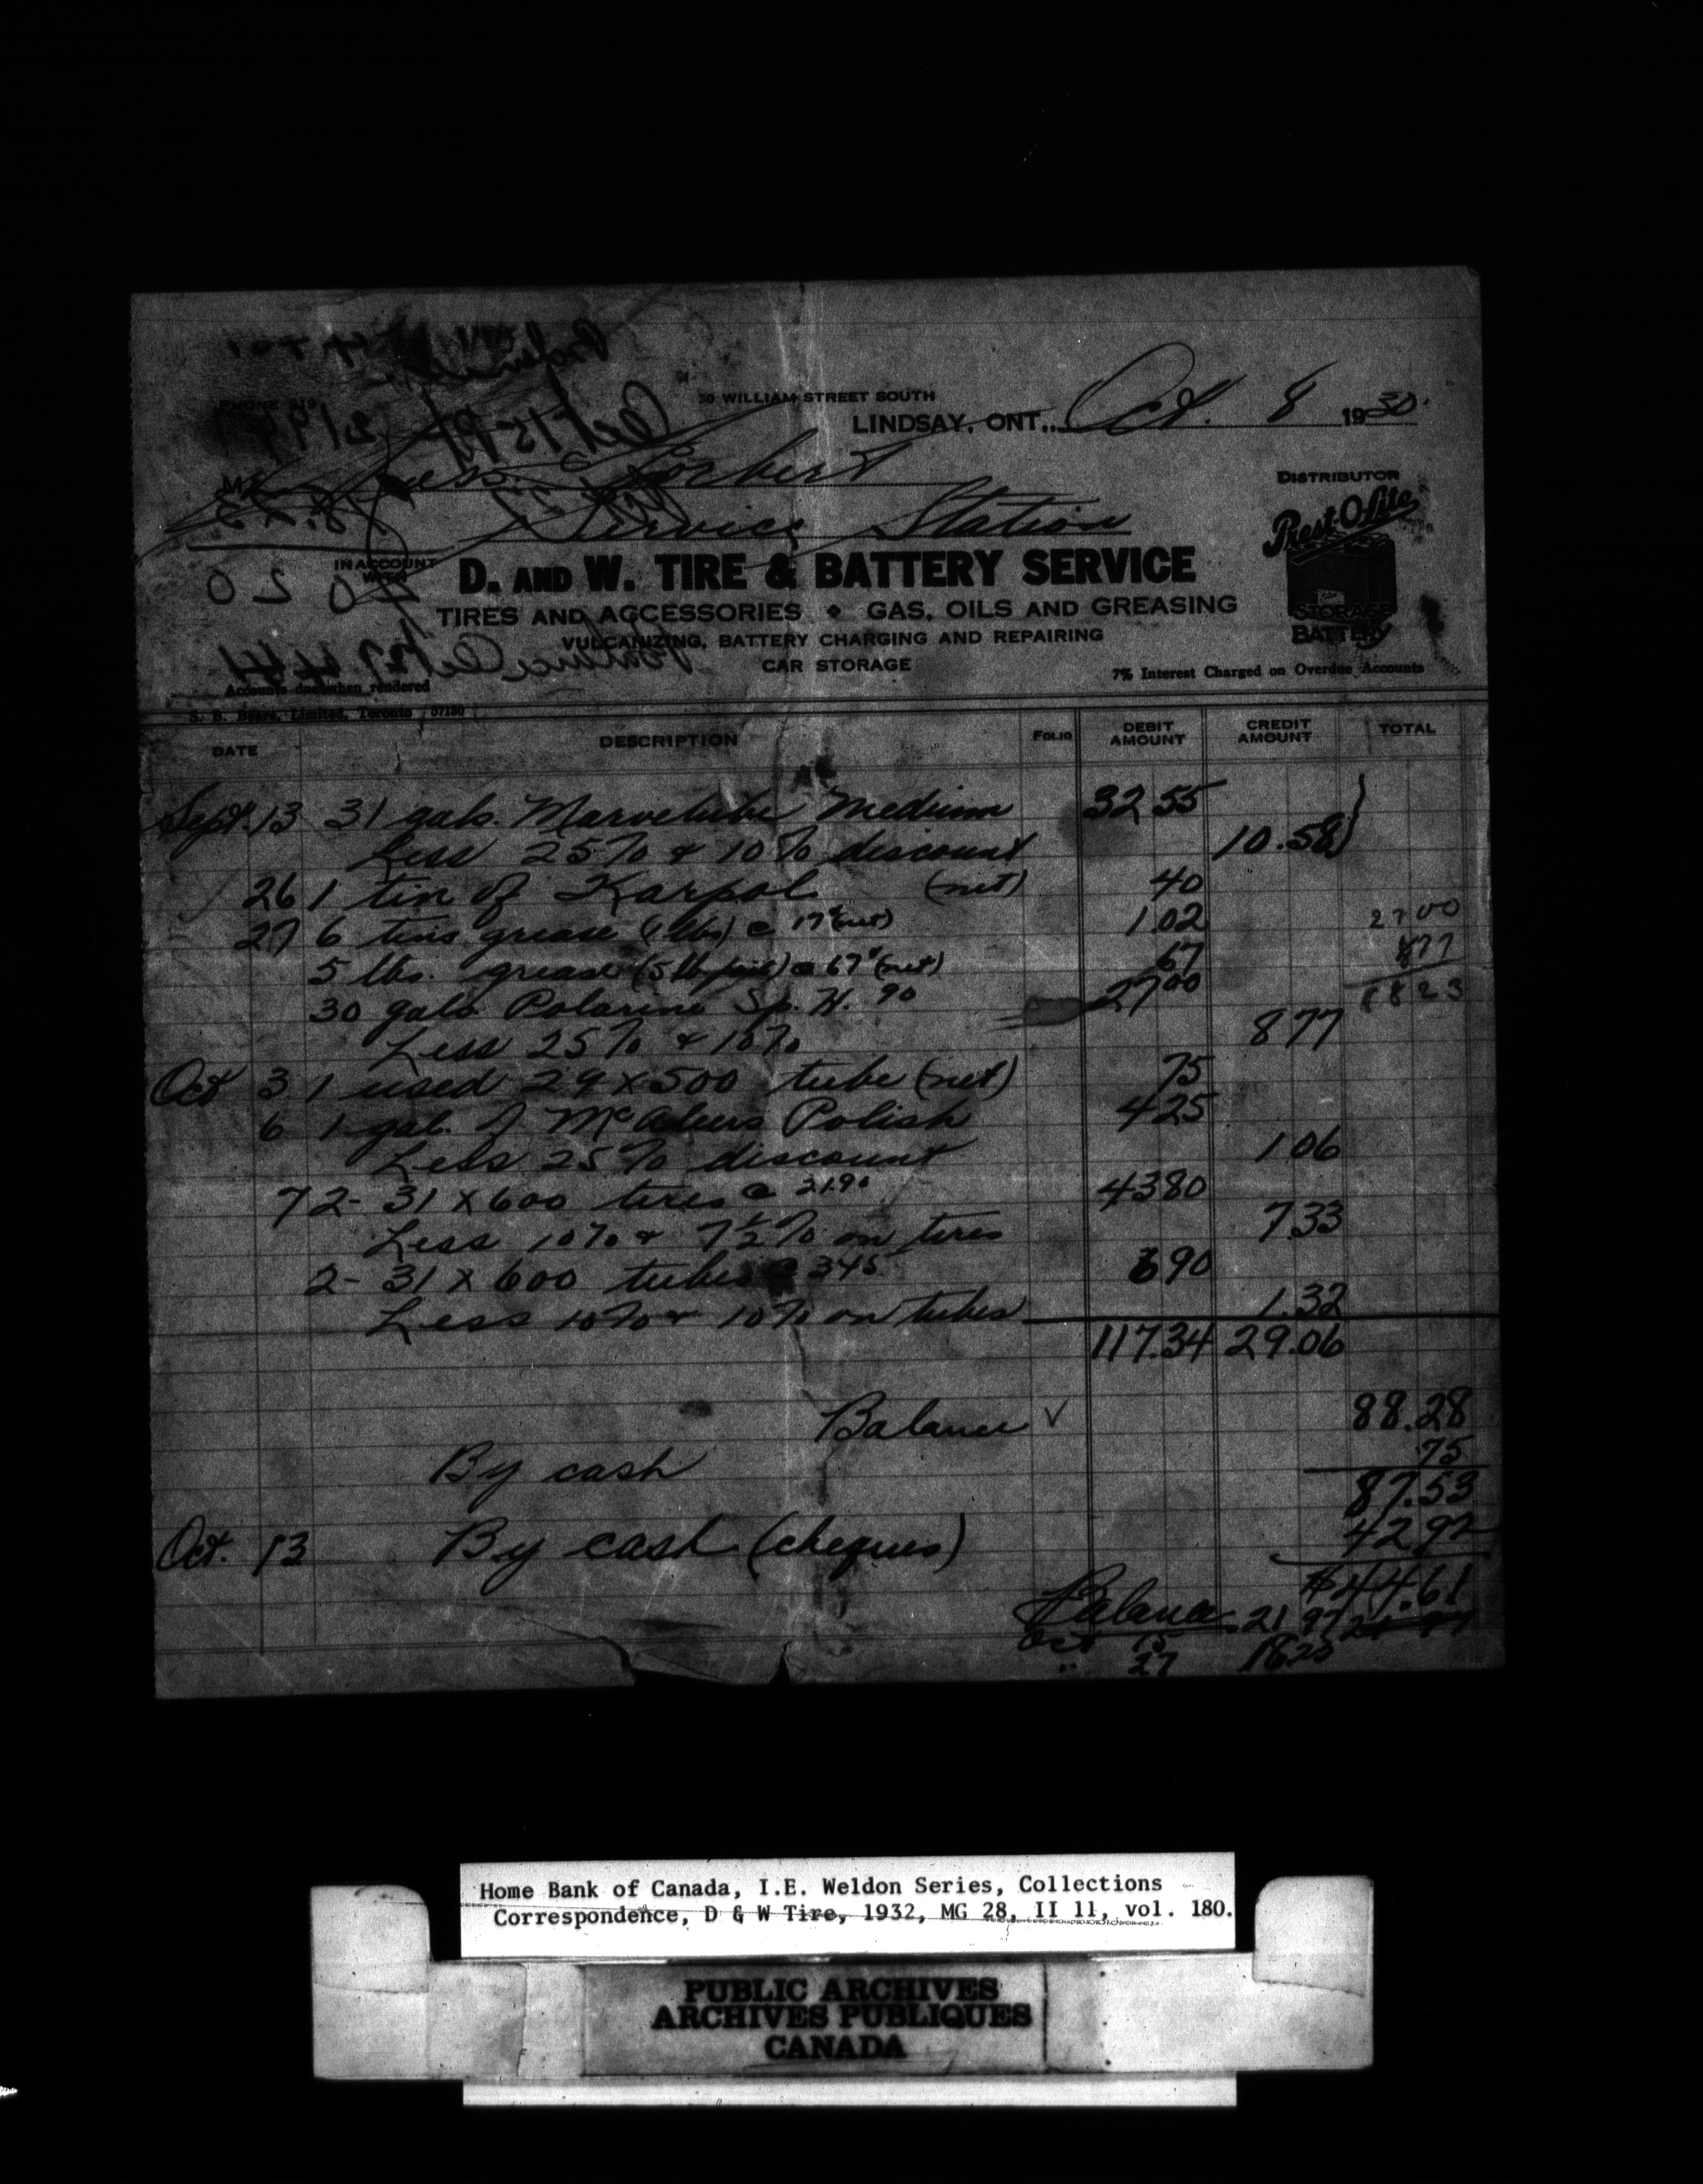 PHONE 919
50 WILLIAM STREET SOUTH
LINDSAY, ONT., Oct. 8 1930.
M
Service Station
DISTRIBUTOR
Prest-O-Lite
STORAGE
BATTERY
IN ACCOUNT
WITH
D. AND W. TIRE & BATTERY SERVICE
TIRES AND ACCESSORIES GAS, OILS AND GREASING
VULCANIZING, BATTERY CHARGING AND REPAIRING
CAR STORAGE
Accounts due when rendered
7% Interest Charged on Overdue Accounts
Limited, Toronto 07180
DATE DESCRIPTION FOLIO DEBIT AMOUNT CREDIT AMOUNT TOTAL
Sept. 13 31 gals. Marvelube Medium 32 55
Less 25% & 10% discount 10.58
26 1 tin of Karpol (net) 40
27 6 tins grease (1 lbs) @ 17¢ (net) 1.02 27 00
5 lbs. grease (5 lb pail) @ 67¢ (net) 67 877
30 gals. Polarine Sp. H. 90 27 00 1823
Less 25% & 10% 8 77
Oct 3 1 used 29 x 500 tube (net) 75
6 1 gal. of McAleers Polish 4 25
Less 25% discount 1 06
7 2- 31 x 600 tires @ 21.90 43 80
Less 10% & 7½% on tires 7.33
2- 31 x 600 tubes @ 345 6 90
Less 10% & 10% on tubes 1.32
117.34 29.06
Balance √ 88.28
By cash 75
87.53
Oct. 13 By cash (cheques) 42.92
$44.61
Balance
Oct 15 21 97
" 27 18.23
Home Bank of Canada, I.E. Weldon Series, Collections
Correspondence, D & W Tire, 1932, MG 28, II 11, vol. 180.
PUBLIC ARCHIVES
ARCHIVES PUBLIQUES
CANADA